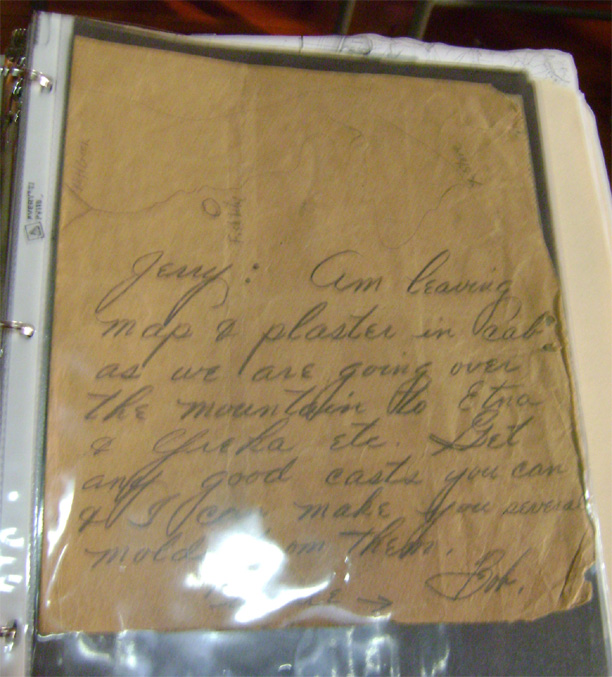 Jerry: Am leaving
map & plaster in cab.
as we are going over
the mountain to Etna
& Yreka etc. Get
any good casts you can
& I can make you several
molds from them.
Bob.